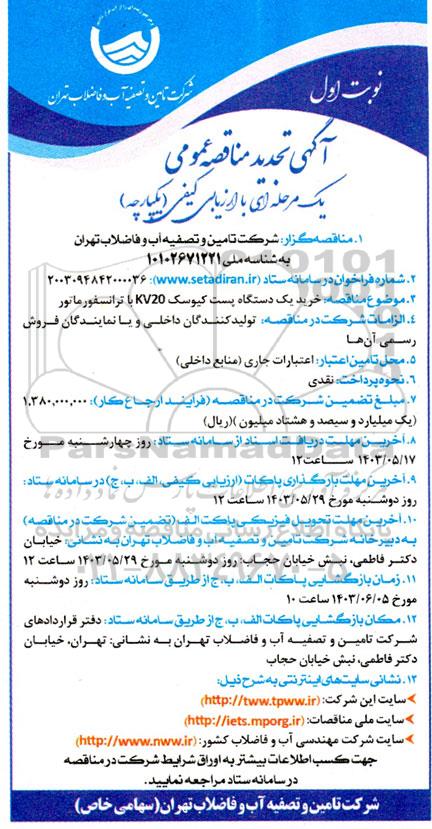 شرکت تامین و تصفیه آب و فاضلاب تهران
نوبت اول
آگهی تجدید مناقصه عمومی
یک مرحله ای با ارزیابی کیفی (یکپارچه)
۱. مناقصه گزار: شرکت تامین و تصفیه آب و فاضلاب تهران
به شناسه ملی ۱۰۱۰۲۶۷۱۲۲۱
۲. شماره فراخوان در سامانه ستاد (www.setadiran.ir): ۲۰۰۳۰۹۴۸۴۲۰۰۰۰۳۶
۳. موضوع مناقصه: خرید یک دستگاه پست کیوسک KV20 با ترانسفورماتور
۴. الزامات شرکت در مناقصه: تولیدکنندگان داخلی و یا نمایندگان فروش
رسمی آن‌ها
۵. محل تامین اعتبار: اعتبارات جاری (منابع داخلی)
۶. نحوه پرداخت: نقدی
۷. مبلغ تضمین شرکت در مناقصه (فرایند ارجاع کار): ۱,۳۸۰,۰۰۰,۰۰۰
(یک میلیارد و سیصد و هشتاد میلیون )(ریال)
۸. آخرین مهلت دریافت اسناد از سامانه ستاد: روز چهارشنبه مورخ
۱۴۰۳/۰۵/۱۷ ساعت ۱۲
۹. آخرین مهلت بارگذاری پاکات (ارزیابی کیفی، الف، ب، ج) در سامانه ستاد:
روز دوشنبه مورخ ۱۴۰۳/۰۵/۲۹ ساعت ۱۲
۱۰. آخرین مهلت تحویل فیزیکی پاکت الف (تضمین شرکت در مناقصه)
به دبیرخانه شرکت تامین و تصفیه آب و فاضلاب تهران به نشانی: خیابان
دکتر فاطمی، نبش خیابان حجاب: روز دوشنبه مورخ ۱۴۰۳/۰۵/۲۹ ساعت ۱۲
۱۱. زمان بازگشایی پاکات الف، ب، ج از طریق سامانه ستاد: روز دوشنبه
مورخ ۱۴۰۳/۰۶/۰۵ ساعت ۱۰
۱۲. مکان بازگشایی پاکات الف، ب، ج از طریق سامانه ستاد: دفتر قراردادهای
شرکت تامین و تصفیه آب و فاضلاب تهران به نشانی: تهران، خیابان
دکتر فاطمی، نبش خیابان حجاب
۱۳. نشانی سایت‌های اینترنتی به شرح ذیل:
سایت این شرکت: (http://tww.tpww.ir)
سایت ملی مناقصات: (http://iets.mporg.ir)
سایت شرکت مهندسی آب و فاضلاب کشور: (http://www.nww.ir)
جهت کسب اطلاعات بیشتر به اوراق شرایط شرکت در مناقصه
در سامانه ستاد مراجعه نمایید.
شرکت تامین و تصفیه آب و فاضلاب تهران (سهامی خاص)